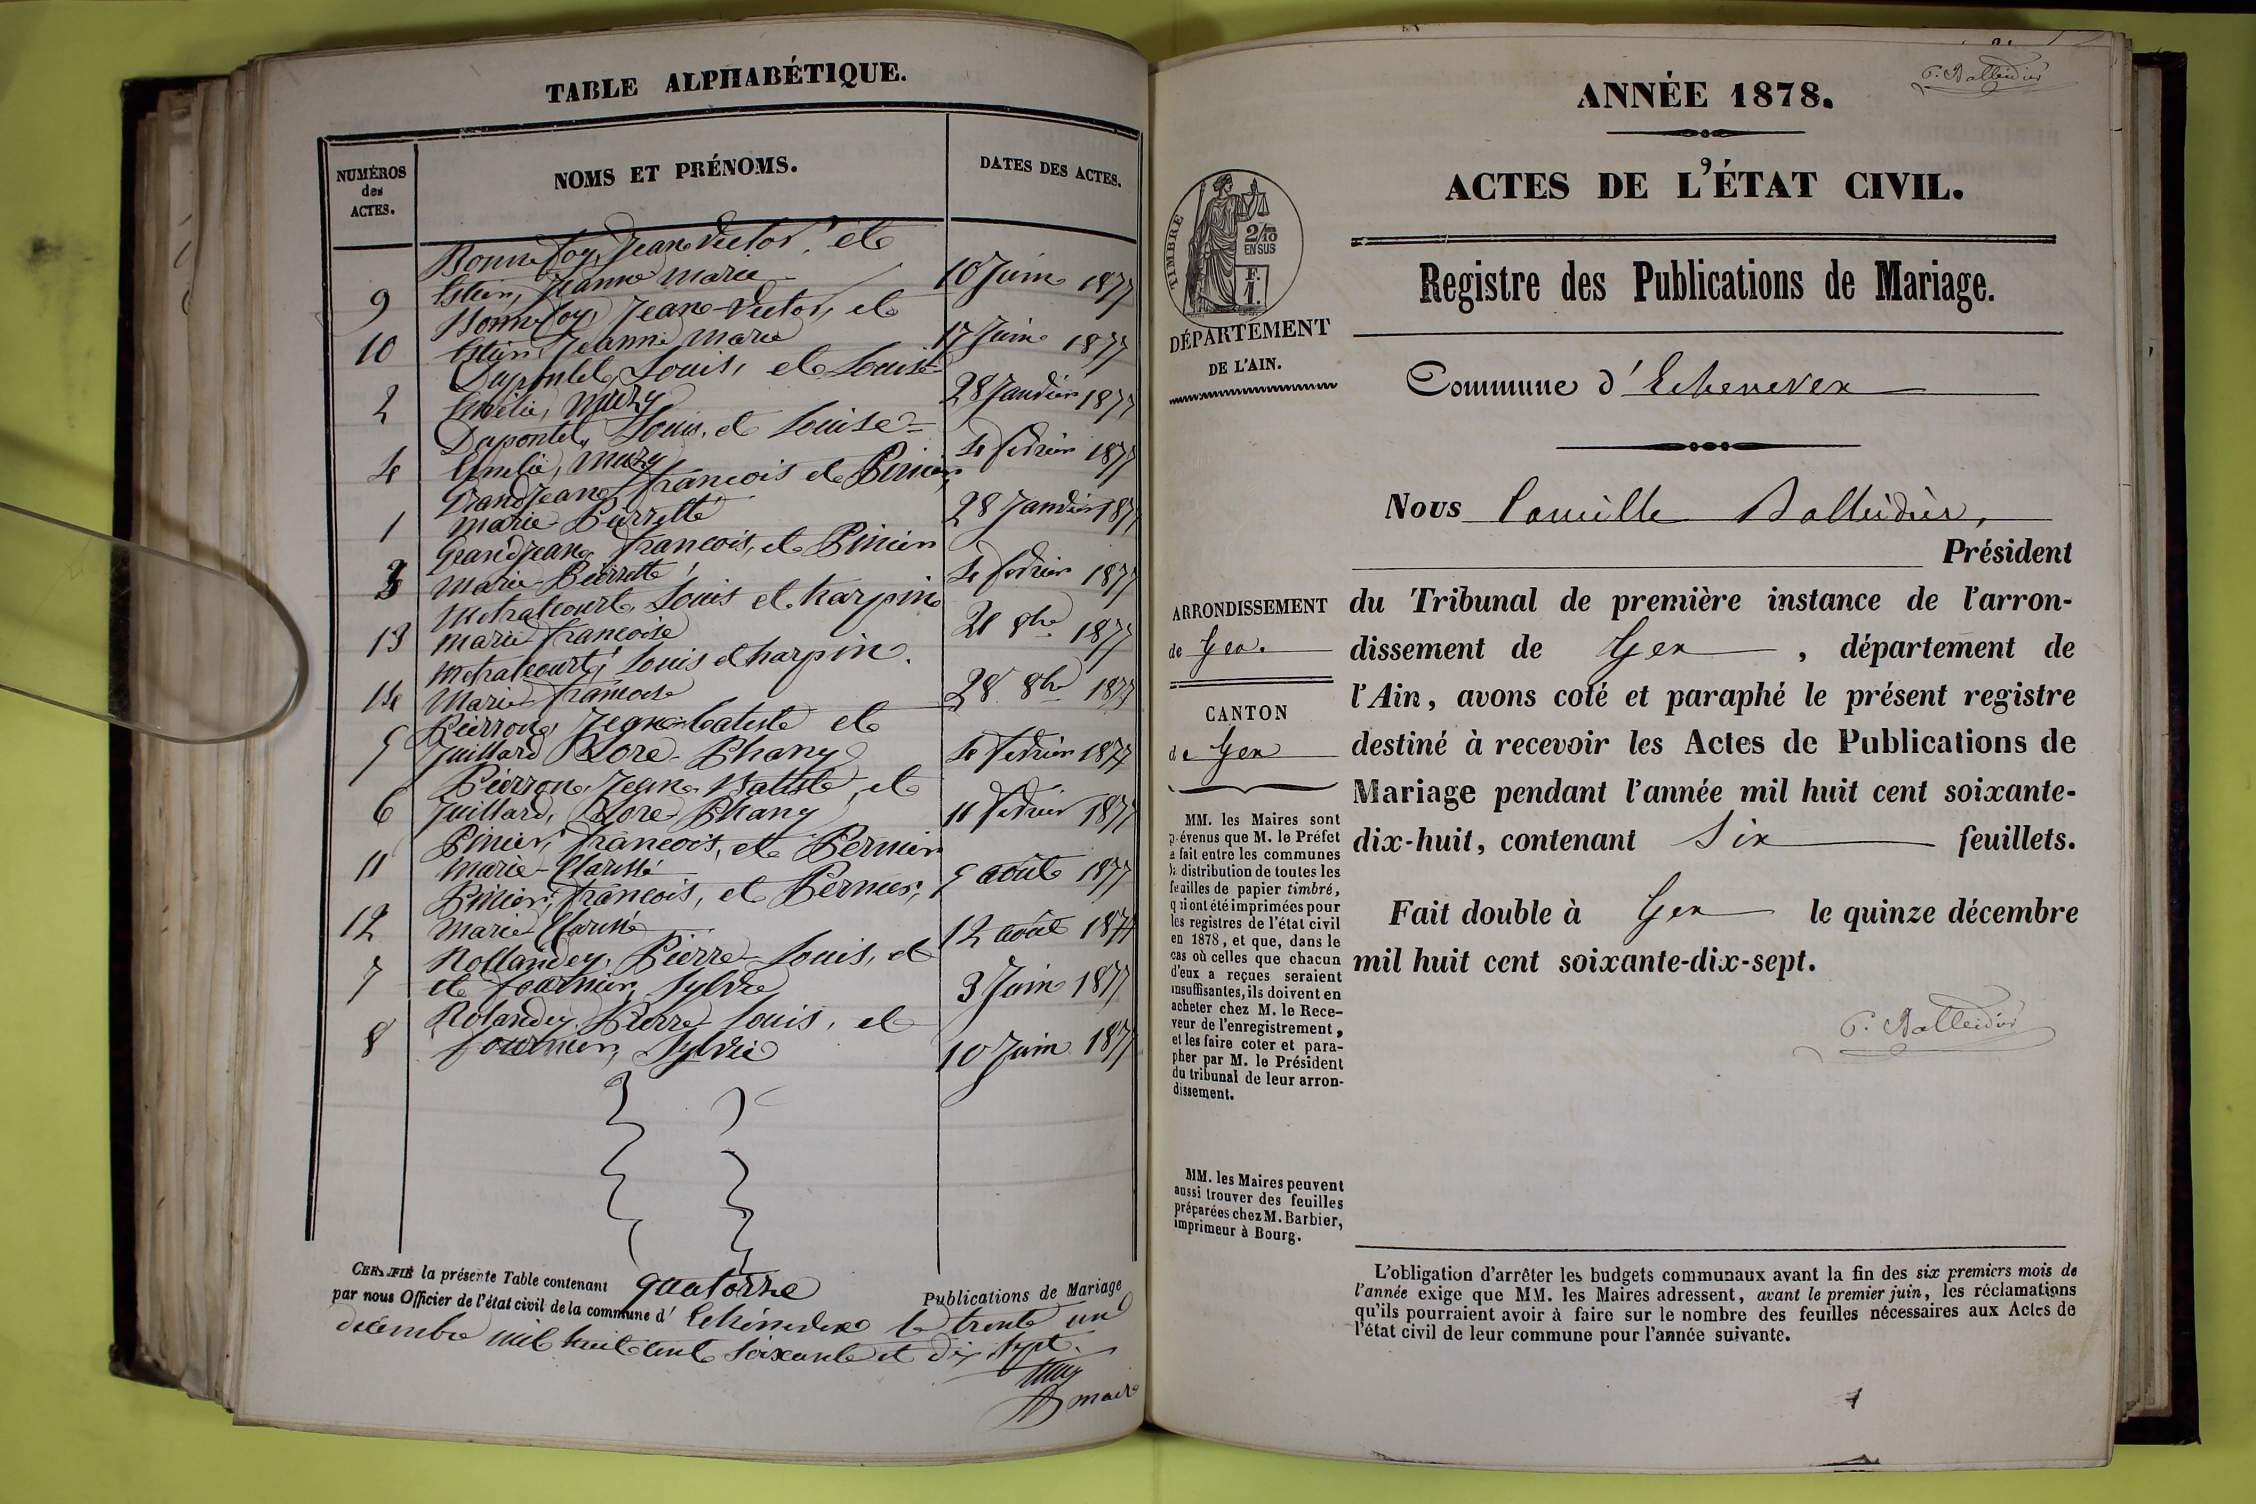 TABLE ALPHABÉTIQUE.
NUMÉROS
des
ACTES.
NOMS ET PRÉNOMS.
DATES DES ACTES.
Bonnefoy, Jean Victor, et
9 Jeanne Marie 10 Juin 1877
Bonnefoy, Jean-Victor, et
10 Jeanne Marie 17 Juin 1877
Dupontel, Louis, et Louise
2 Emélie, Muzy 28 Janvier 1877
Dupontel, Louis, et Louise-
4 Emelie, Muzy 4 fevrier 1877
GrandJean, francois et Pinier,
1 Marie Pierrette 28 Janvier 1877
GrandJean, francois, et Pinier
3 Marie-Pierrette 4 fevrier 1877
Louis et harpin
13 Marie francoise 21 8bre 1877
Louis et harpin.
14 Marie francoise 28 8bre 1877
Pierron, Jean-batiste et
5 Juillard Lore-Phany 4 fevrier 1877
Pierron, Jean-Batiste, et
6 Juillard, Lore-Phany 11 fevrier 1877
Pinier, francois, et Pernier
11 Marie-Clarisse 5 août 1877
Pinier, francois, et Pernier,
12 Marie Clarisse 12 août 1877
Rollandey, Pierre-Louis, et
7 et fournier, Sylvie 3 Juin 1877
Rolandey, Pierre Louis, et
8 fournier, Sylvie 10 Juin 1877
CERTIFIÉ la présente Table contenant quatorze Publications de Mariage
par nous Officier de l'état civil de la commune d' Echenevex le trente un
décembre mil huit cent soixante et dix sept.
Muzy
maire
ANNÉE 1878.
C. Balleidier
ACTES DE L'ÉTAT CIVIL.
TIMBRE
2/10
EN SUS
F.
1.
Registre des Publications de Mariage.
DÉPARTEMENT
DE L'AIN.
Commune d'Echenevex
Nous Camille Balleidier,
Président
ARRONDISSEMENT
de Gex.
CANTON
de Gex
du Tribunal de première instance de l'arron-
dissement de Gex, département de
l'Ain, avons coté et paraphé le présent registre
destiné à recevoir les Actes de Publications de
Mariage pendant l'année mil huit cent soixante-
dix-huit, contenant Six feuillets.
Fait double à Gex le quinze décembre
mil huit cent soixante-dix-sept.
C. Balleidier
MM. les Maires sont
prévenus que M. le Préfet
a fait entre les communes
la distribution de toutes les
feuilles de papier timbré,
qui ont été imprimées pour
les registres de l'état civil
en 1878, et que, dans le
cas où celles que chacun
d'eux a reçues seraient
insuffisantes, ils doivent en
acheter chez M. le Rece-
veur de l'enregistrement,
et les faire coter et para-
pher par M. le Président
du tribunal de leur arron-
dissement.
MM. les Maires peuvent
aussi trouver des feuilles
préparées chez M. Barbier,
imprimeur à Bourg.
L'obligation d'arrêter les budgets communaux avant la fin des six premiers mois de
l'année exige que MM. les Maires adressent, avant le premier juin, les réclamations
qu'ils pourraient avoir à faire sur le nombre des feuilles nécessaires aux Actes de
l'état civil de leur commune pour l'année suivante.